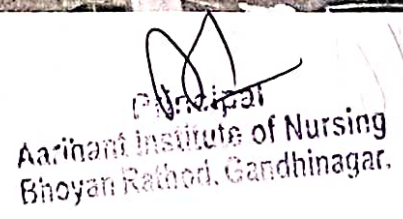 Principal
Aarihant Institute of Nursing
Bhoyan Rathod, Gandhinagar.